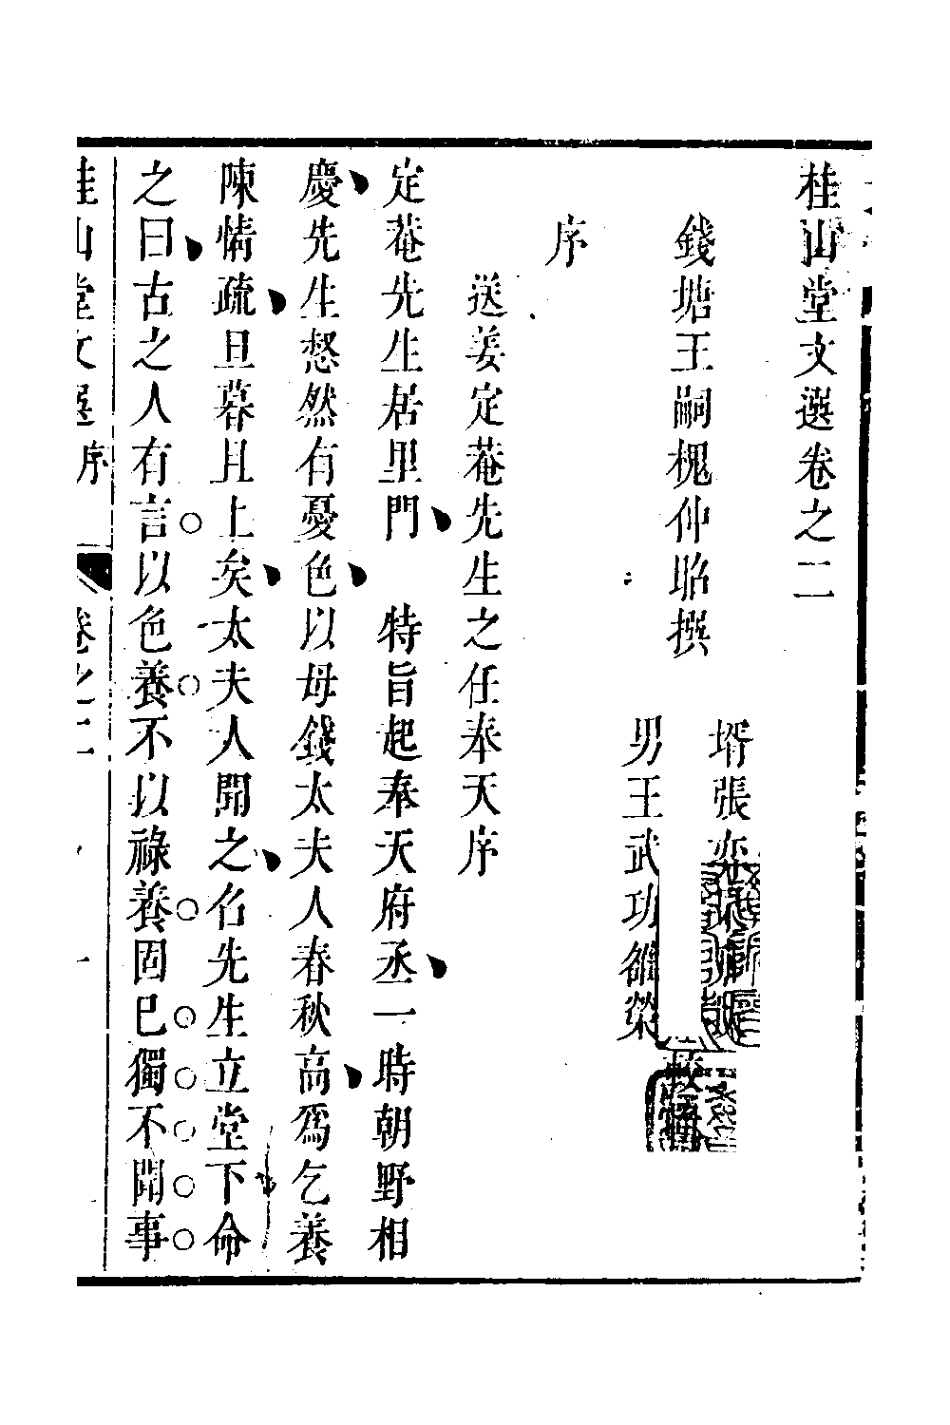 桂山堂文選卷之二
錢塘王嗣槐仲昭撰
壻張奕
男王武功維榮
校
序
送姜定菴先生之任奉天序
定菴先生居里門　特旨起奉天府丞一時朝野相
慶先生愁然有憂色以母錢太夫人春秋高爲乞養
陳情疏旦暮且上矣太夫人聞之名先生立堂下命
之曰古之人有言以色養不以祿養固已獨不聞事
桂山堂文選
序
卷之二
一